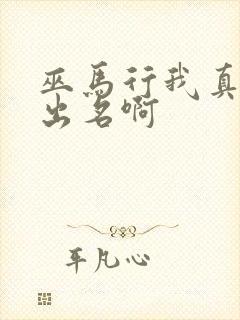 巫马行我真
出名啊
平凡心